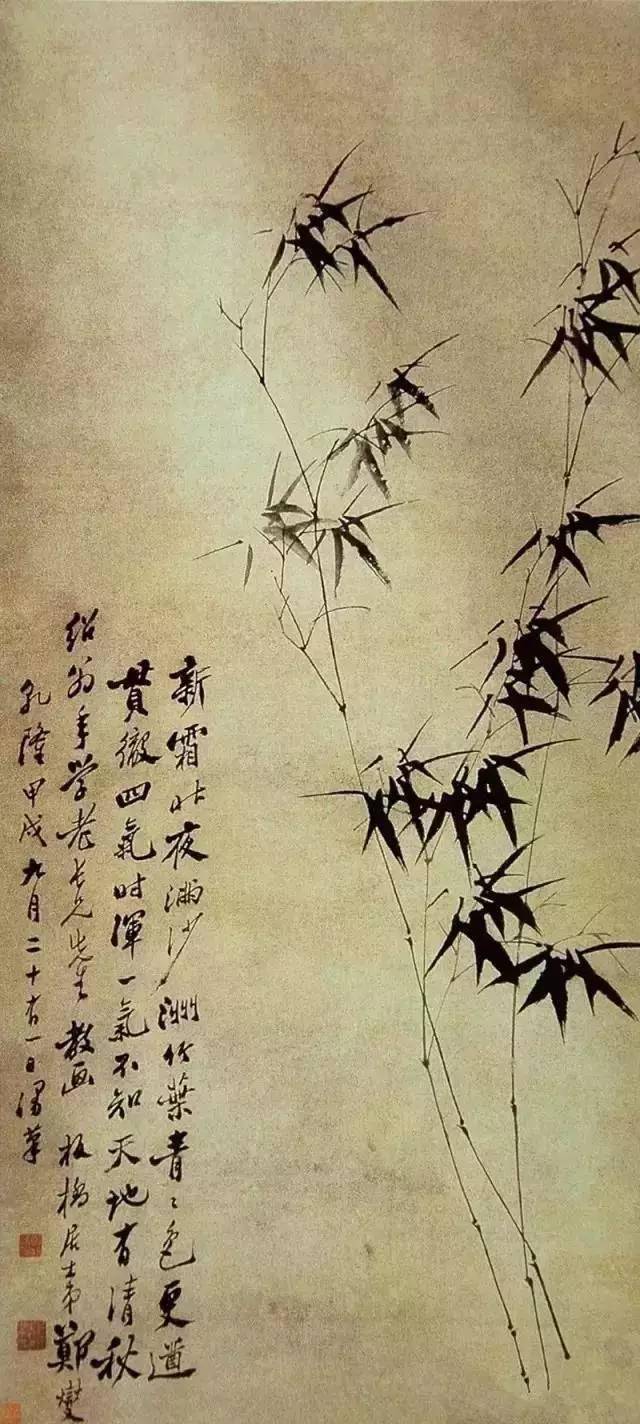 新霜昨夜滿沙洲竹葉青〻色更遒
貫徹四氣时渾一氣不知天地有清秋
紹翁年学老長兄先生教画板橋居士弟鄭燮
乾隆甲戌九月二十有一日